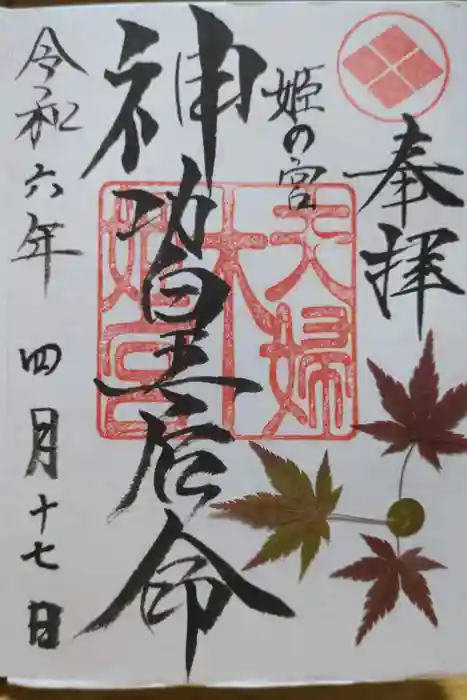 奉拝
姫の宮
神功皇后命
夫婦
木
姫宮
令和六年 四月十七日